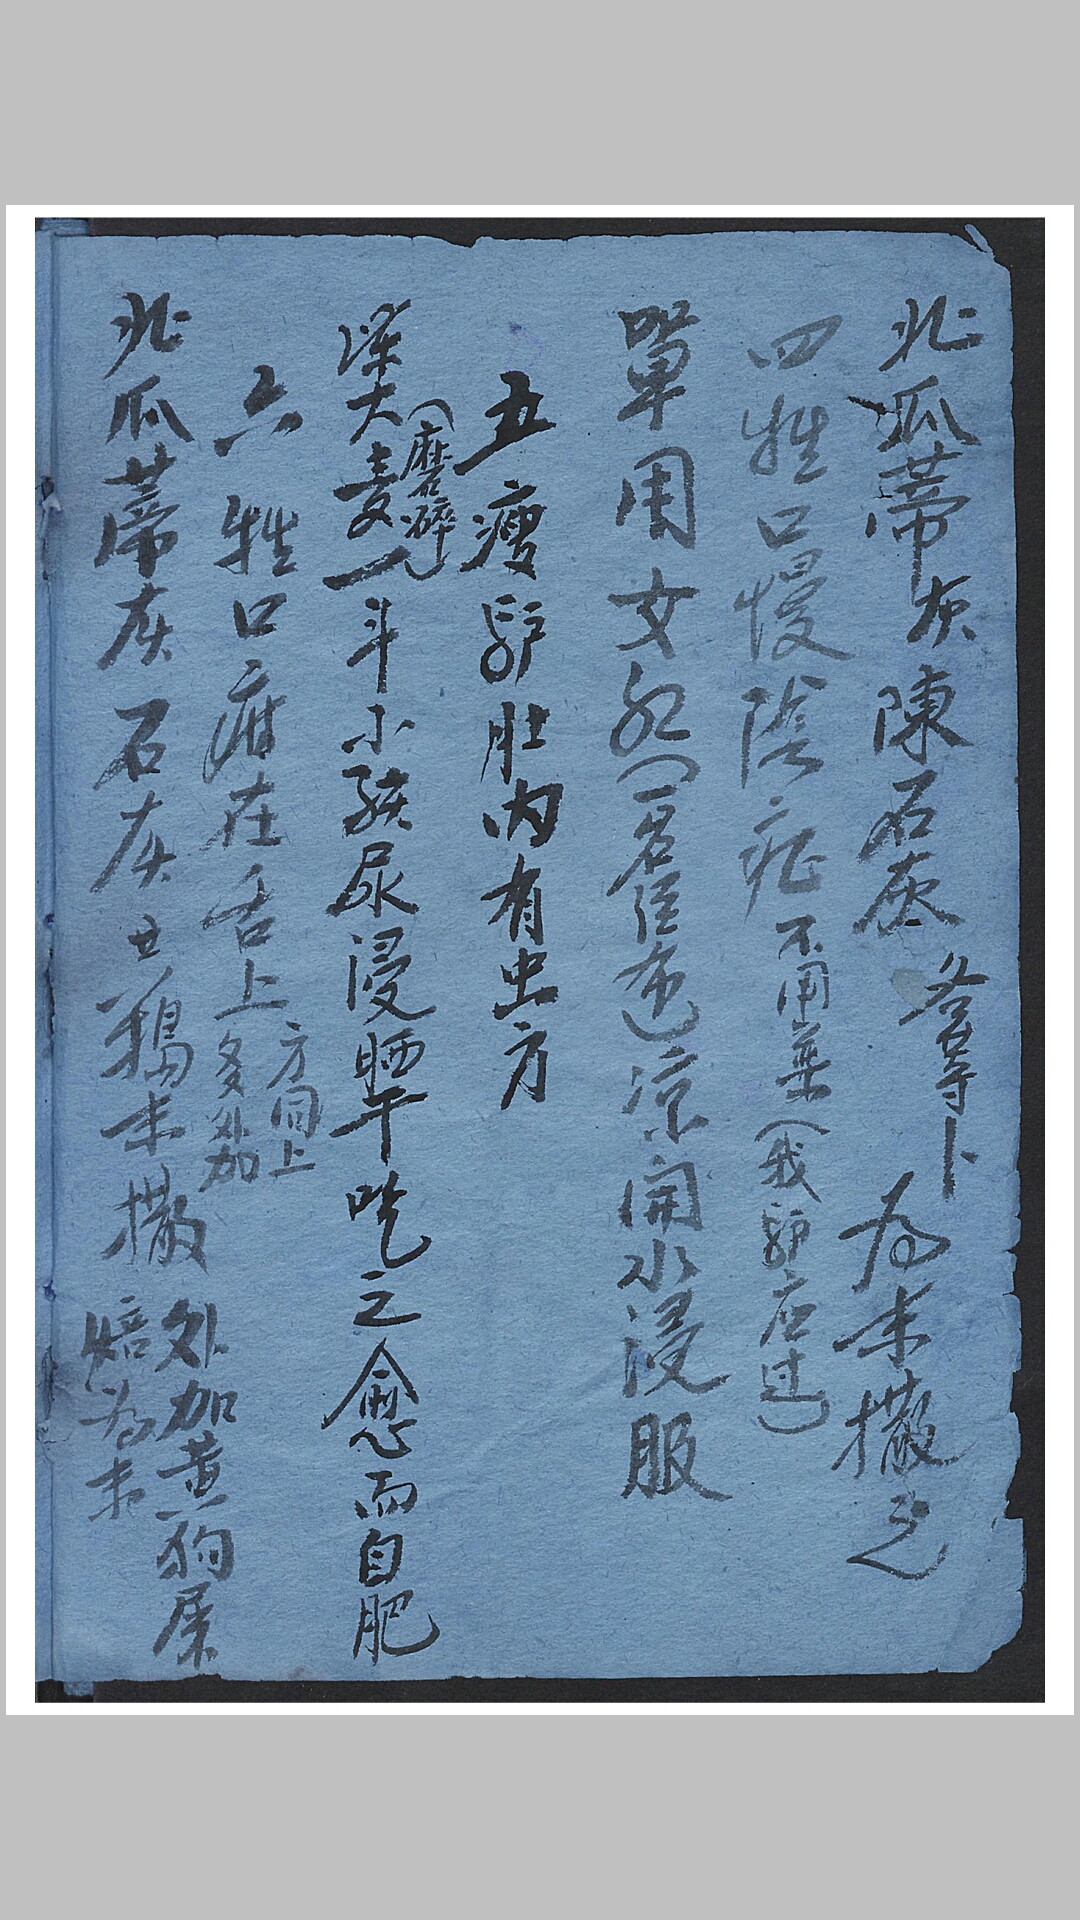 北瓜蒂灰陳石灰 各等卜 为末撒之
四牲口慢陰症不用藥(我驴应过)
單用女紅(一名经布)凉开水浸服
五瘦驴肚内有虫方
大麦(磨碎)一斗小孩尿浸晒干吃之愈而自肥
六牲口疳在舌上方同上多处加
北瓜蒂灰石灰 鵝末撒 外加黄狗屎 焙为末